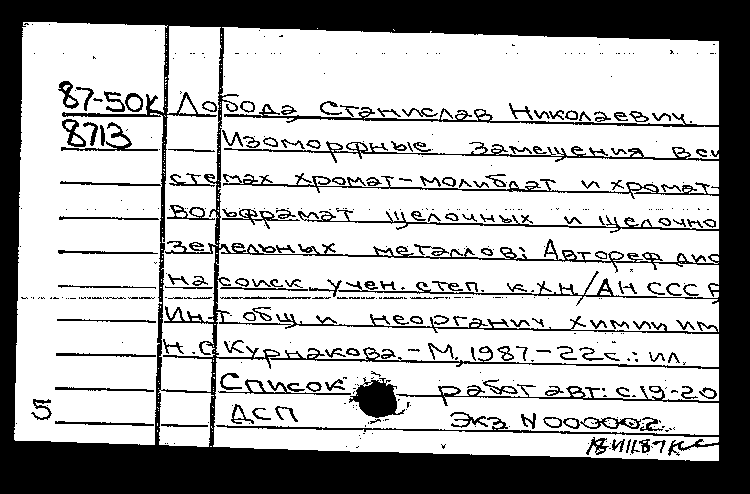 87-50К Лобода Станислав Николаевич.
8713 Изоморфные замещения в си
стемах хромат-молибдат и хромат-
вольфрамат щелочных и щелочно
земельных металлов: Автореф дис
на соиск. учен. степ. к.х.н/АН СССР
Ин-т общ. и неорганич. химии им
Н.С.Курнакова.-М,1987.-22с.: ил.
Список работ авт: с.19-20
5 ДСП Экз N000002